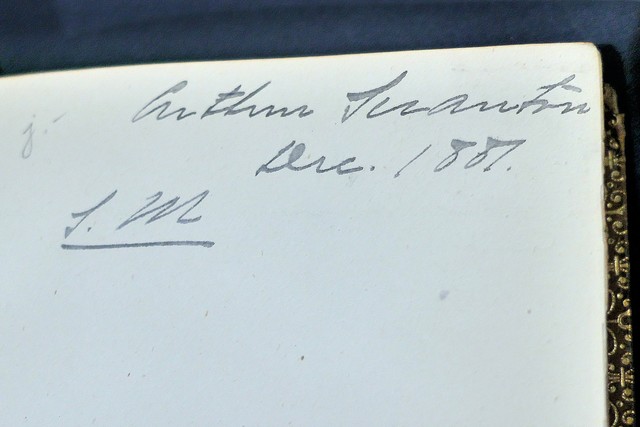 Arthur Scranton
Dec. 1881.
S. M